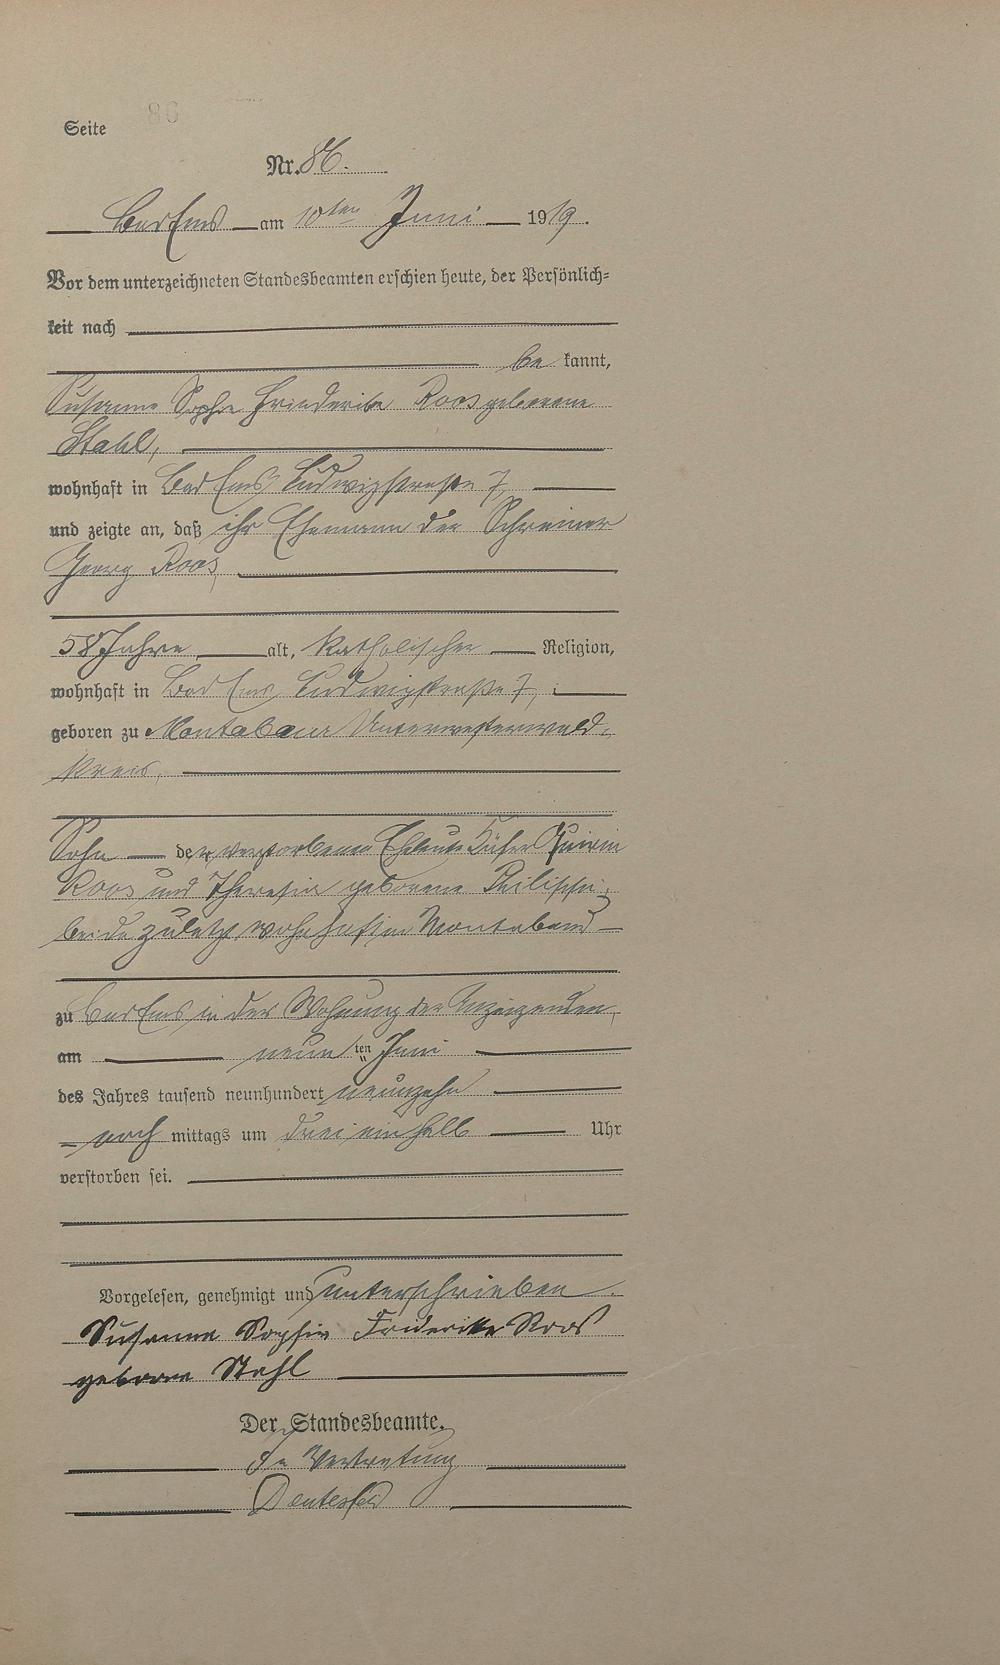 Seite 86
Nr. 86.
Bad Ems am 10ten Juni 1919.
Vor dem unterzeichneten Standesbeamten erschien heute, der Persönlich-
keit nach
be kannt,
Susanne Sophie Friederike Roos geborene
Stahl,
wohnhaft in Bad Ems, Ludwigstraße 7,
und zeigte an, daß ihr Ehemann der Schreiner
Georg Roos,
58 Jahre alt, katholischer Religion,
wohnhaft in Bad Ems, Ludwigstraße 7,
geboren zu Montabaur Unterwesterwald-
kreis,
Sohn der verstorbenen Eheleute Küfer Quirin
Roos und Theresia geborene Philippi,
beide zuletzt wohnhaft in Montabaur
zu Bad Ems in der Wohnung der Anzeigenden,
am neun ten Juni
des Jahres tausend neunhundert neunzehn
nach mittags um drei einhalb Uhr
verstorben sei.
Vorgelesen, genehmigt und unterschrieben.
Susanna Sophie Friderike Roos
geborne Stahl
Der Standesbeamte.
In Vertretung